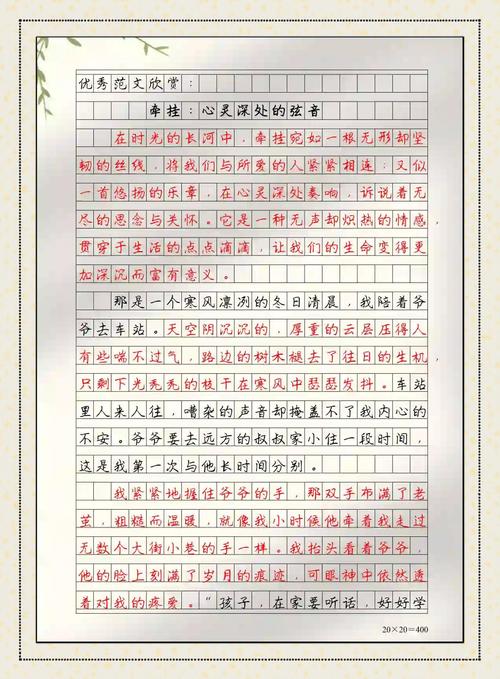 优秀范文欣赏：
牵挂：心灵深处的弦音
在时光的长河中，牵挂宛如一根无形却坚
韧的丝线，将我们与所爱的人紧紧相连；又似
一首悠扬的乐章，在心灵深处奏响，诉说着无
尽的思念与关怀。它是一种无声却炽热的情感，
贯穿于生活的点点滴滴，让我们的生命变得更
加深沉而富有意义。
那是一个寒风凛冽的冬日清晨，我陪着爷
爷去车站。天空阴沉沉的，厚重的云层压得人
有些喘不过气，路边的树木褪去了往日的生机，
只剩下光秃秃的枝干在寒风中瑟瑟发抖。车站
里人来人往，嘈杂的声音却掩盖不了我内心的
不安。爷爷要去远方的叔叔家小住一段时间，
这是我第一次与他长时间分别。
我紧紧地握住爷爷的手，那双手布满了老
茧，粗糙而温暖，就像我小时候他牵着我走过
无数个大街小巷的手一样。我抬头看着爷爷，
他的脸上刻满了岁月的痕迹，可眼神中依然透
着对我的疼爱。“孩子，在家要听话，好好学
20×20=400